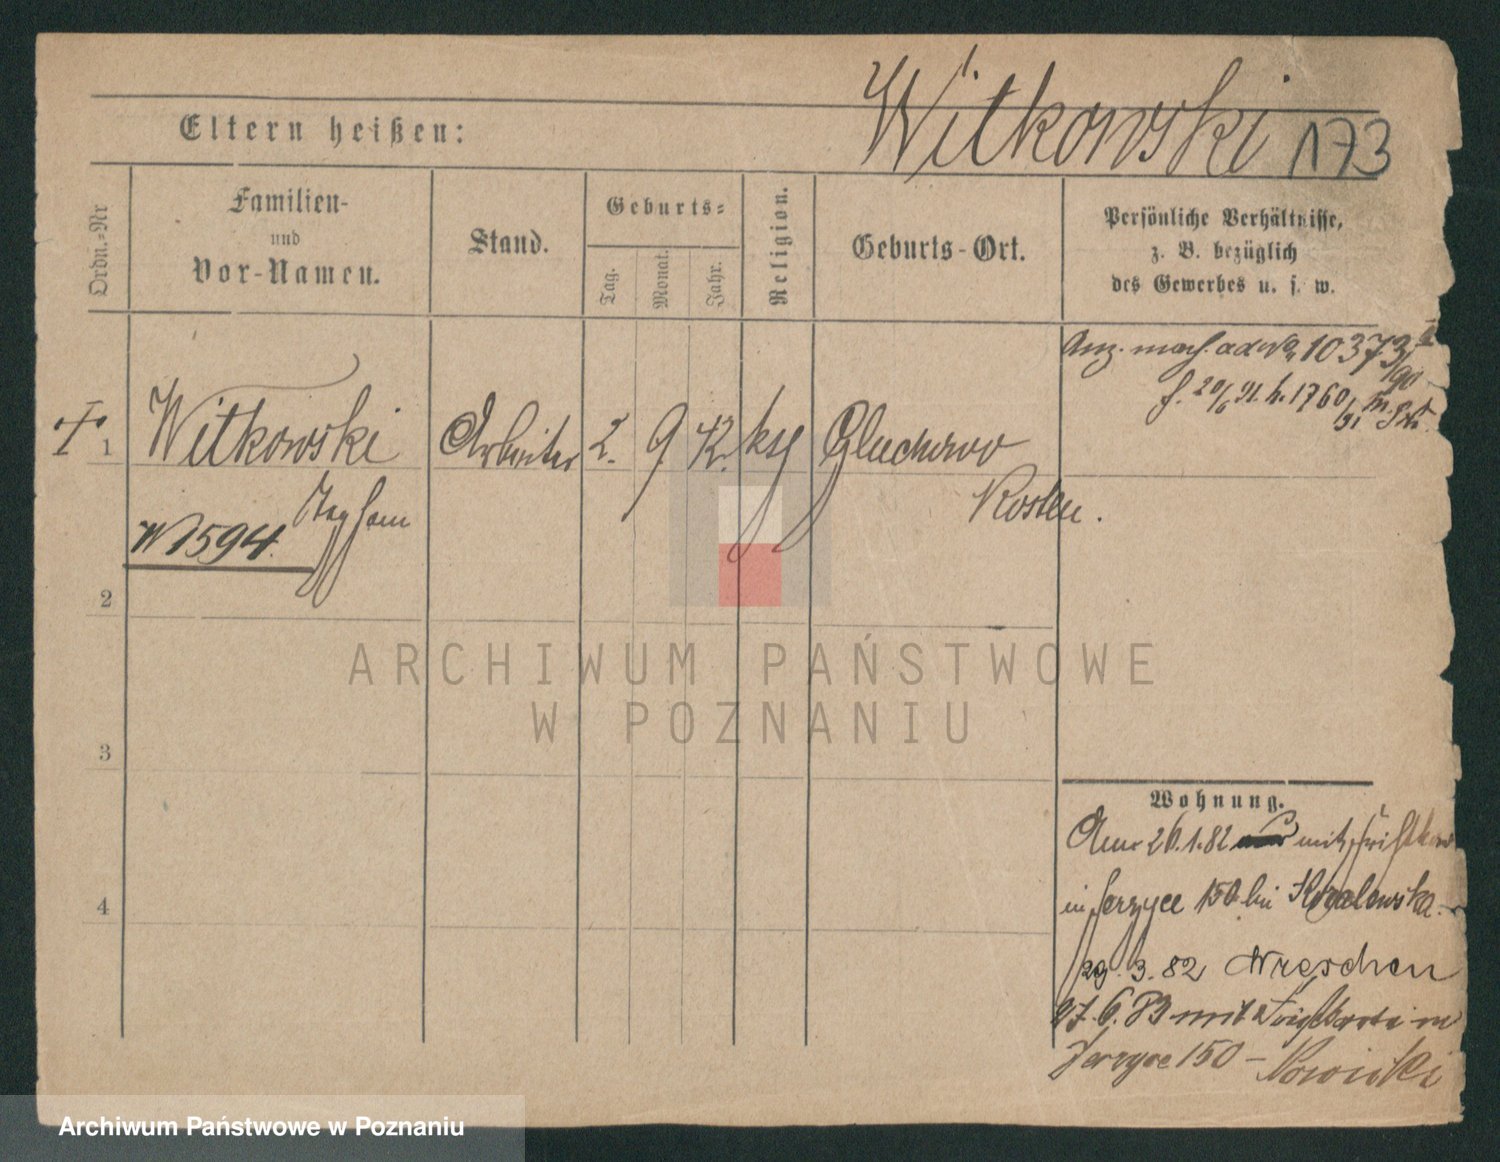 Witkowski 173
Eltern heißen:
Ordn.-Nr
Familien-
und
Vor-Namen.
Stand.
Geburts-
Tag.
Monat.
Jahr.
Religion.
Geburts-Ort.
Persönliche Verhältnisse,
z. B. bezüglich
des Gewerbes u. s. w.
10373/90
20/6 91. 1760/91
1 Witkowski Arbeiter 2. 9. 12. Gluchowo
Kosten.
N 1594.
2
3
4
Wohnung.
26.1.82 mit
in Jerzyce 150 bei
29.3.82 Wreschen
27.6.83 mit in
Jerzyce 150 – Nowicki
ARCHIWUM PAŃSTWOWE
W POZNANIU
Archiwum Państwowe w Poznaniu